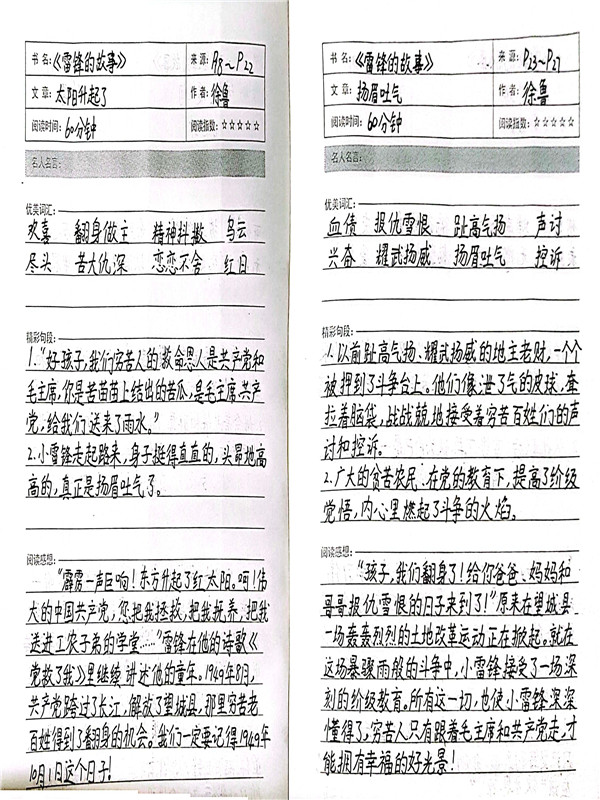 书名:《雷锋的故事》 来源:P18~P22
文章:太阳升起了 作者:徐鲁
阅读时间:60分钟 阅读指数:☆☆☆☆☆
名人名言:
优美词汇:
欢喜 翻身做主 精神抖擞 乌云
尽头 苦大仇深 恋恋不舍 红日
精彩句段:
1."好孩子,我们穷苦人的救命恩人是共产党和
毛主席,你是苦苗苗上结出的苦瓜,是毛主席、共产
党,给我们送来了雨水。"
2.小雷锋走起路来,身子挺得直直的,头昂地高
高的,真正是扬眉吐气了。
阅读感想:
"霹雳一声巨响!东方升起了红太阳。呵!伟
大的中国共产党,您把我拯救,把我抚养,把我
送进工农子弟的学堂……"雷锋在他的诗歌《
党救了我》里继续讲述他的童年。1949年8月,
共产党跨过了长江,解放了望城县,那里穷苦老
百姓得到了翻身的机会。我们一定要记得1949年
10月1日这个日子!
书名:《雷锋的故事》 来源:P23~P27
文章:扬眉吐气 作者:徐鲁
阅读时间:60分钟 阅读指数:☆☆☆☆☆
名人名言:
优美词汇:
血债 报仇雪恨 趾高气扬 声讨
兴奋 耀武扬威 扬眉吐气 控诉
精彩句段:
1.以前趾高气扬、耀武扬威的地主老财,一个个
被押到了斗争台上。他们像泄了气的皮球,耷
拉着脑袋,战战兢地接受着穷苦百姓们的声
讨和控诉。
2.广大的贫苦农民,在党的教育下,提高了阶级
觉悟,内心里燃起了斗争的火焰。
阅读感想:
"孩子,我们翻身了!给你爸爸、妈妈和
哥哥报仇雪恨的日子来到了!"原来在望城县
一场轰轰烈烈的土地改革运动正在掀起。就在
这场暴骤雨般的斗争中,小雷锋接受了一场深
刻的阶级教育。所有这一切,也使小雷锋深深
懂得了,穷苦人只有跟着毛主席和共产党走,才
能拥有幸福的好光景!